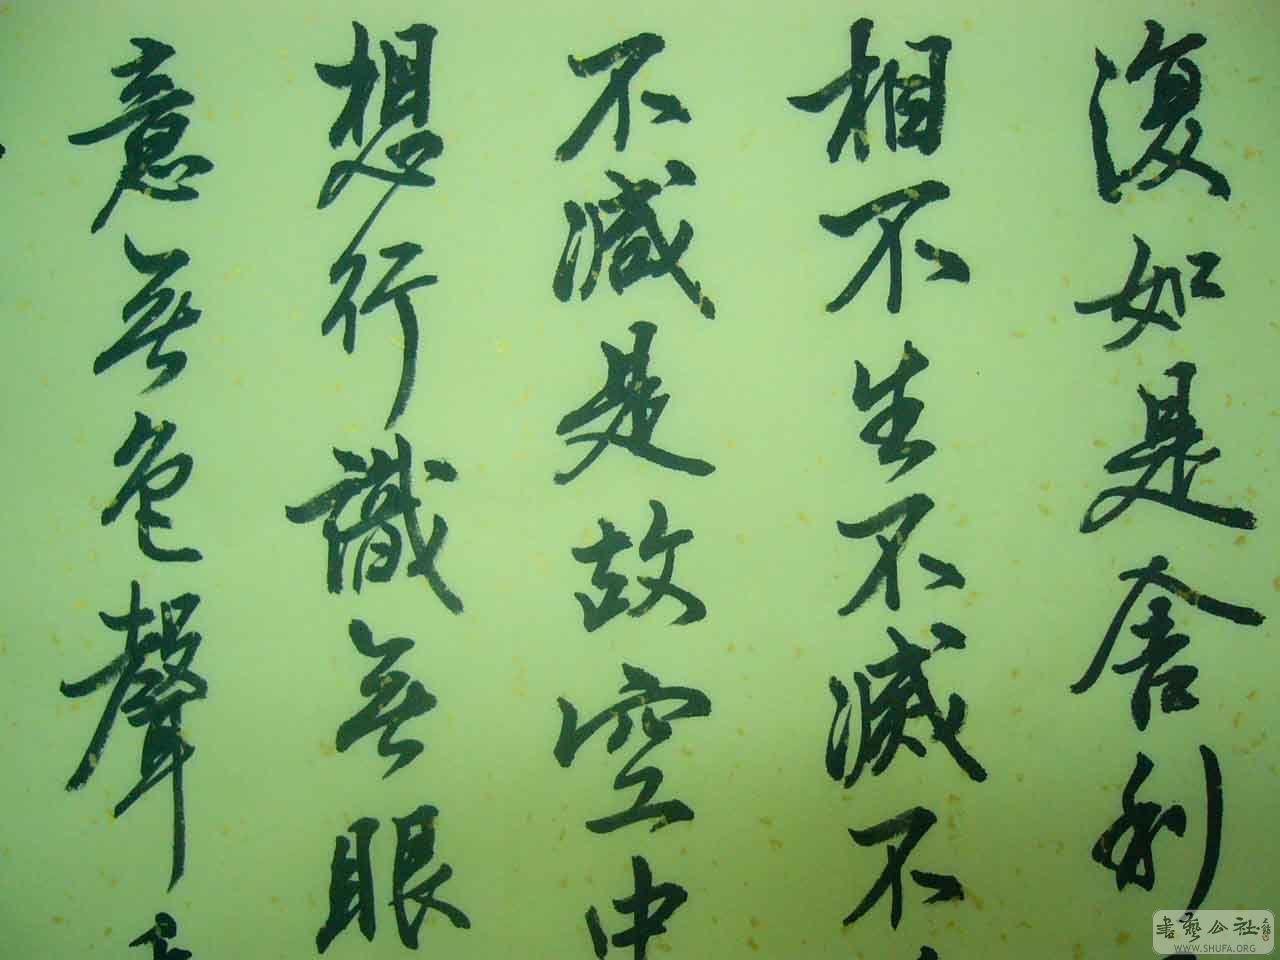 復如是舍利
相不生不滅不
不減是故空中
想行識無眼
意無色聲
書藝公社
WWW.SHUFA.ORG